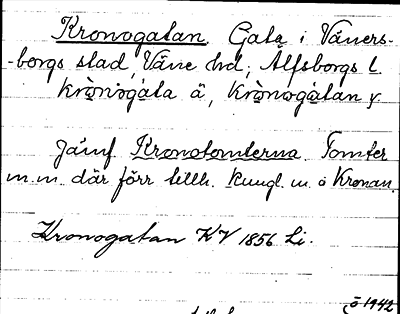 Kronogatan. Gata i Väners-
-borgs stad, Väne hd, Älfsborgs l.
krònogàta ä, krònogàtan y
Jämf. Kronotomterna. Tomter
m.m. där förr tillh. Kungl. m. o Kronan.
Kronogatan KV 1856 Li.
ö 1942